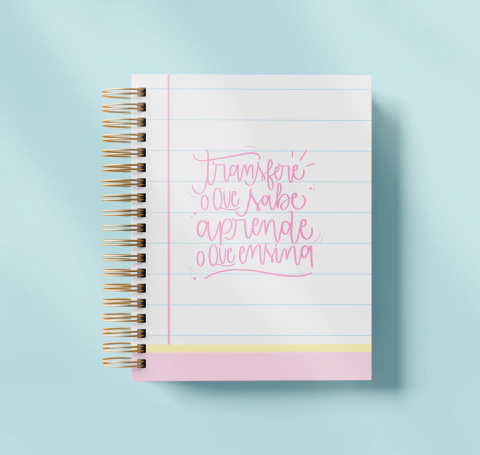 transfere
o Que sabe
aprende
o Que ensina